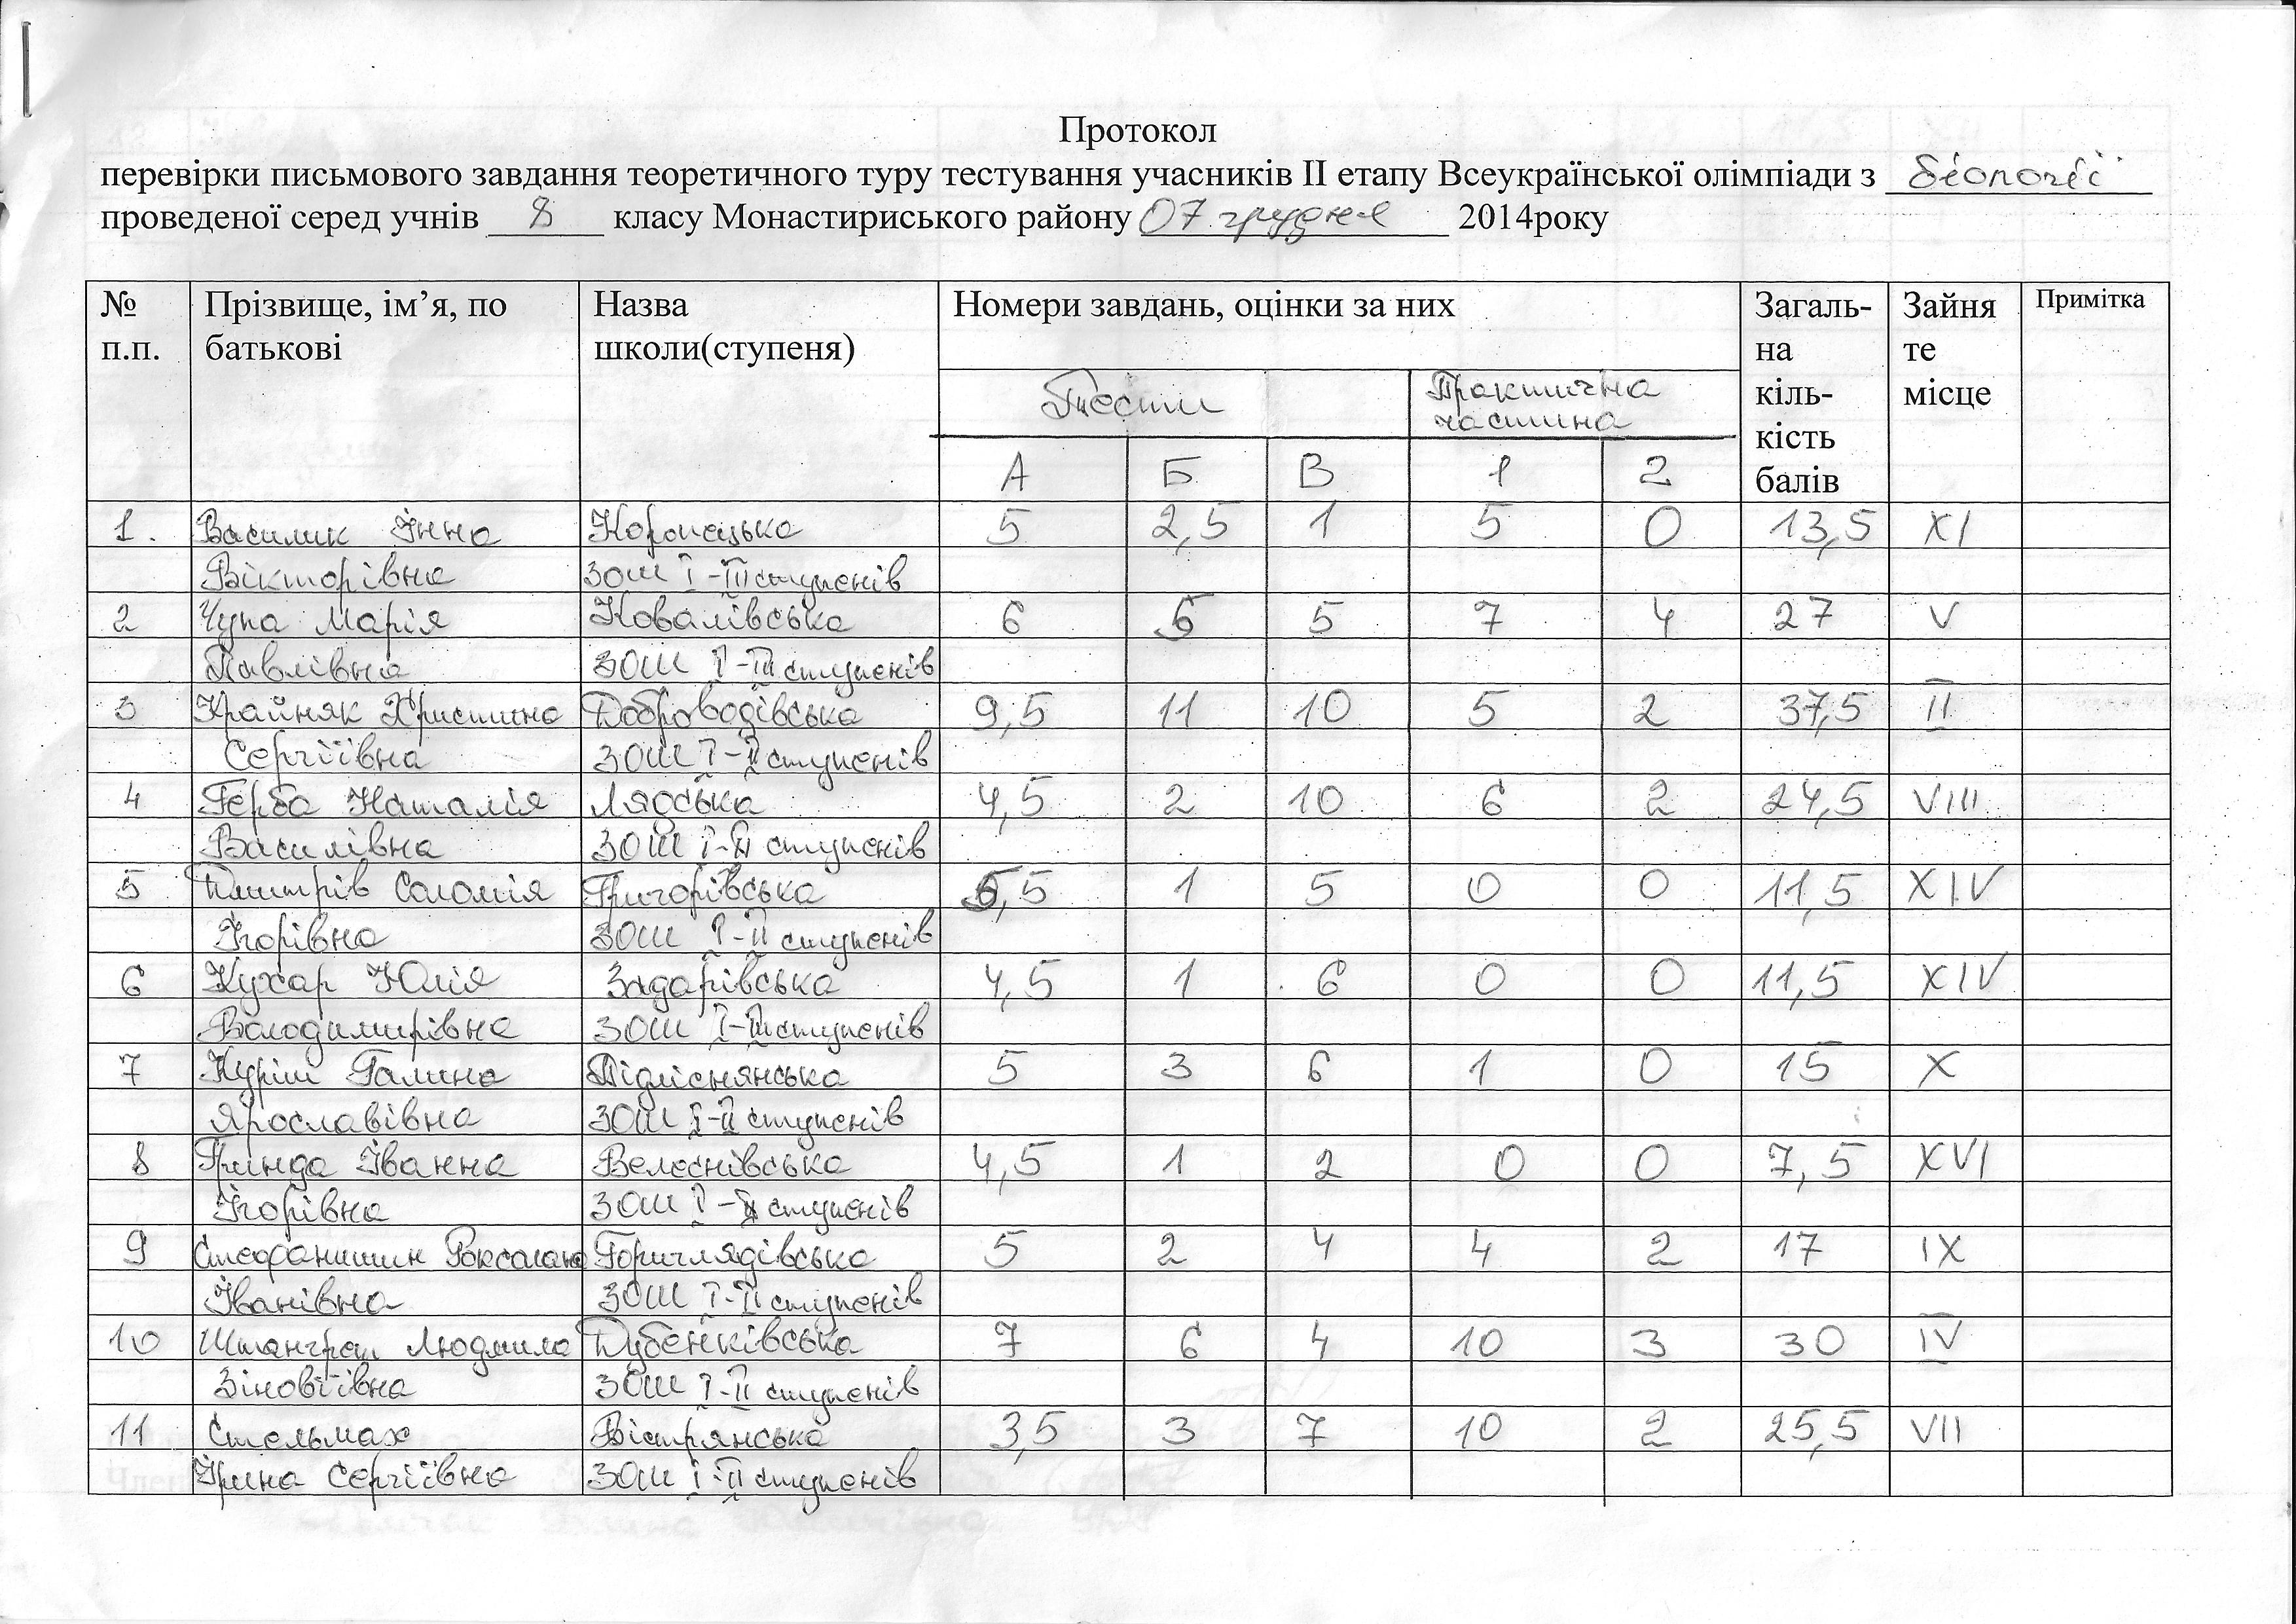 Протокол
перевірки письмового завдання теоретичного туру тестування учасників ІІ етапу Всеукраїнської олімпіади з біології
проведеної серед учнів 8 класу Монастириського району 07 грудня 2014року
№ п.п. Прізвище, ім’я, по батькові Назва школи(ступеня) Номери завдань, оцінки за них Загаль-на кіль-кість балів Зайня те місце Примітка
Тести Практична частина
А Б В 1 2
1. Василик Інна Коропецька 5 2,5 1 5 0 13,5 XI
Вікторівна ЗОШ І-ІІІ ступенів
2 Чупа Марія Ковалівська 6 5 5 7 4 27 V
Павлівна ЗОШ І-ІІІ ступенів
3 Крайняк Христина Доброводівська 9,5 11 10 5 2 37,5 II
Сергіївна ЗОШ І-ІІ ступенів
4 Герба Наталія Лядська 4,5 2 10 6 2 24,5 VIII
Василівна ЗОШ І-ІІ ступенів
5 Дмитрів Соломія Григорівська 5,5 1 5 0 0 11,5 XIV
Ігорівна ЗОШ І-ІІ ступенів
6 Кухар Юлія Задарівська 4,5 1 6 0 0 11,5 XIV
Володимирівна ЗОШ І-ІІІ ступенів
7 Куріш Галина Підліснянська 5 3 6 1 0 15 X
Ярославівна ЗОШ І-ІІ ступенів
8 Гринда Іванна Велеснівська 4,5 1 2 0 0 7,5 XVI
Ігорівна ЗОШ І-ІІ ступенів
9 Стефанишин Роксолана Горигляdівська 5 2 4 4 2 17 IX
Іванівна ЗОШ І-ІІ ступенів
10 Штанграт Людмила Дубенківська 7 6 4 10 3 30 IV
Зіновіївна ЗОШ І-ІІ ступенів
11 Стельмах Вістрянська 3,5 3 7 10 2 25,5 VII
Ірина Сергіївна ЗОШ І-ІІ ступенів